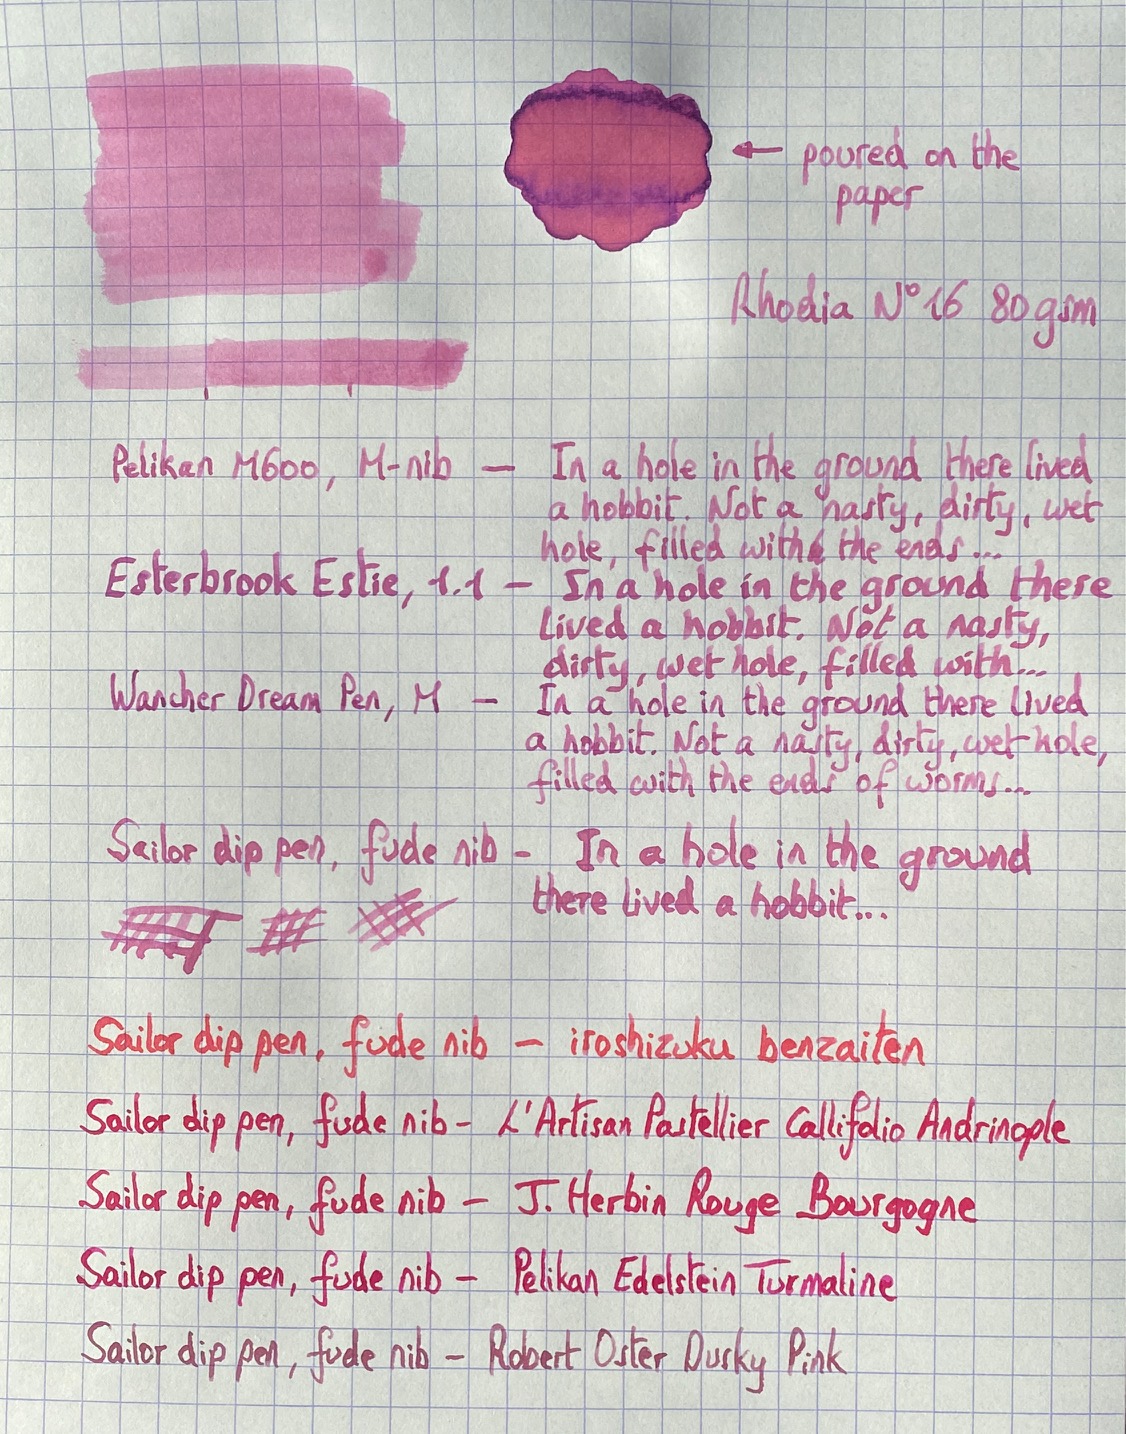 ← poured on the
paper
Rhodia N° 16 80 gsm
Pelikan M600, M-nib — In a hole in the ground there lived
a hobbit. Not a nasty, dirty, wet
hole, filled with the ends...
Esterbrook Estie, 1.1 — In a hole in the ground there
lived a hobbit. Not a nasty,
dirty, wet hole, filled with...
Wancher Dream Pen, M — In a hole in the ground there lived
a hobbit. Not a nasty, dirty, wet hole,
filled with the ends of worms...
Sailor dip pen, fude nib - In a hole in the ground
there lived a hobbit...
Sailor dip pen, fude nib - iroshizuku benzaiten
Sailor dip pen, fude nib - L'Artisan Pastellier Callifolio Andrinople
Sailor dip pen, fude nib - J. Herbin Rouge Bourgogne
Sailor dip pen, fude nib - Pelikan Edelstein Turmaline
Sailor dip pen, fude nib - Robert Oster Dusky Pink